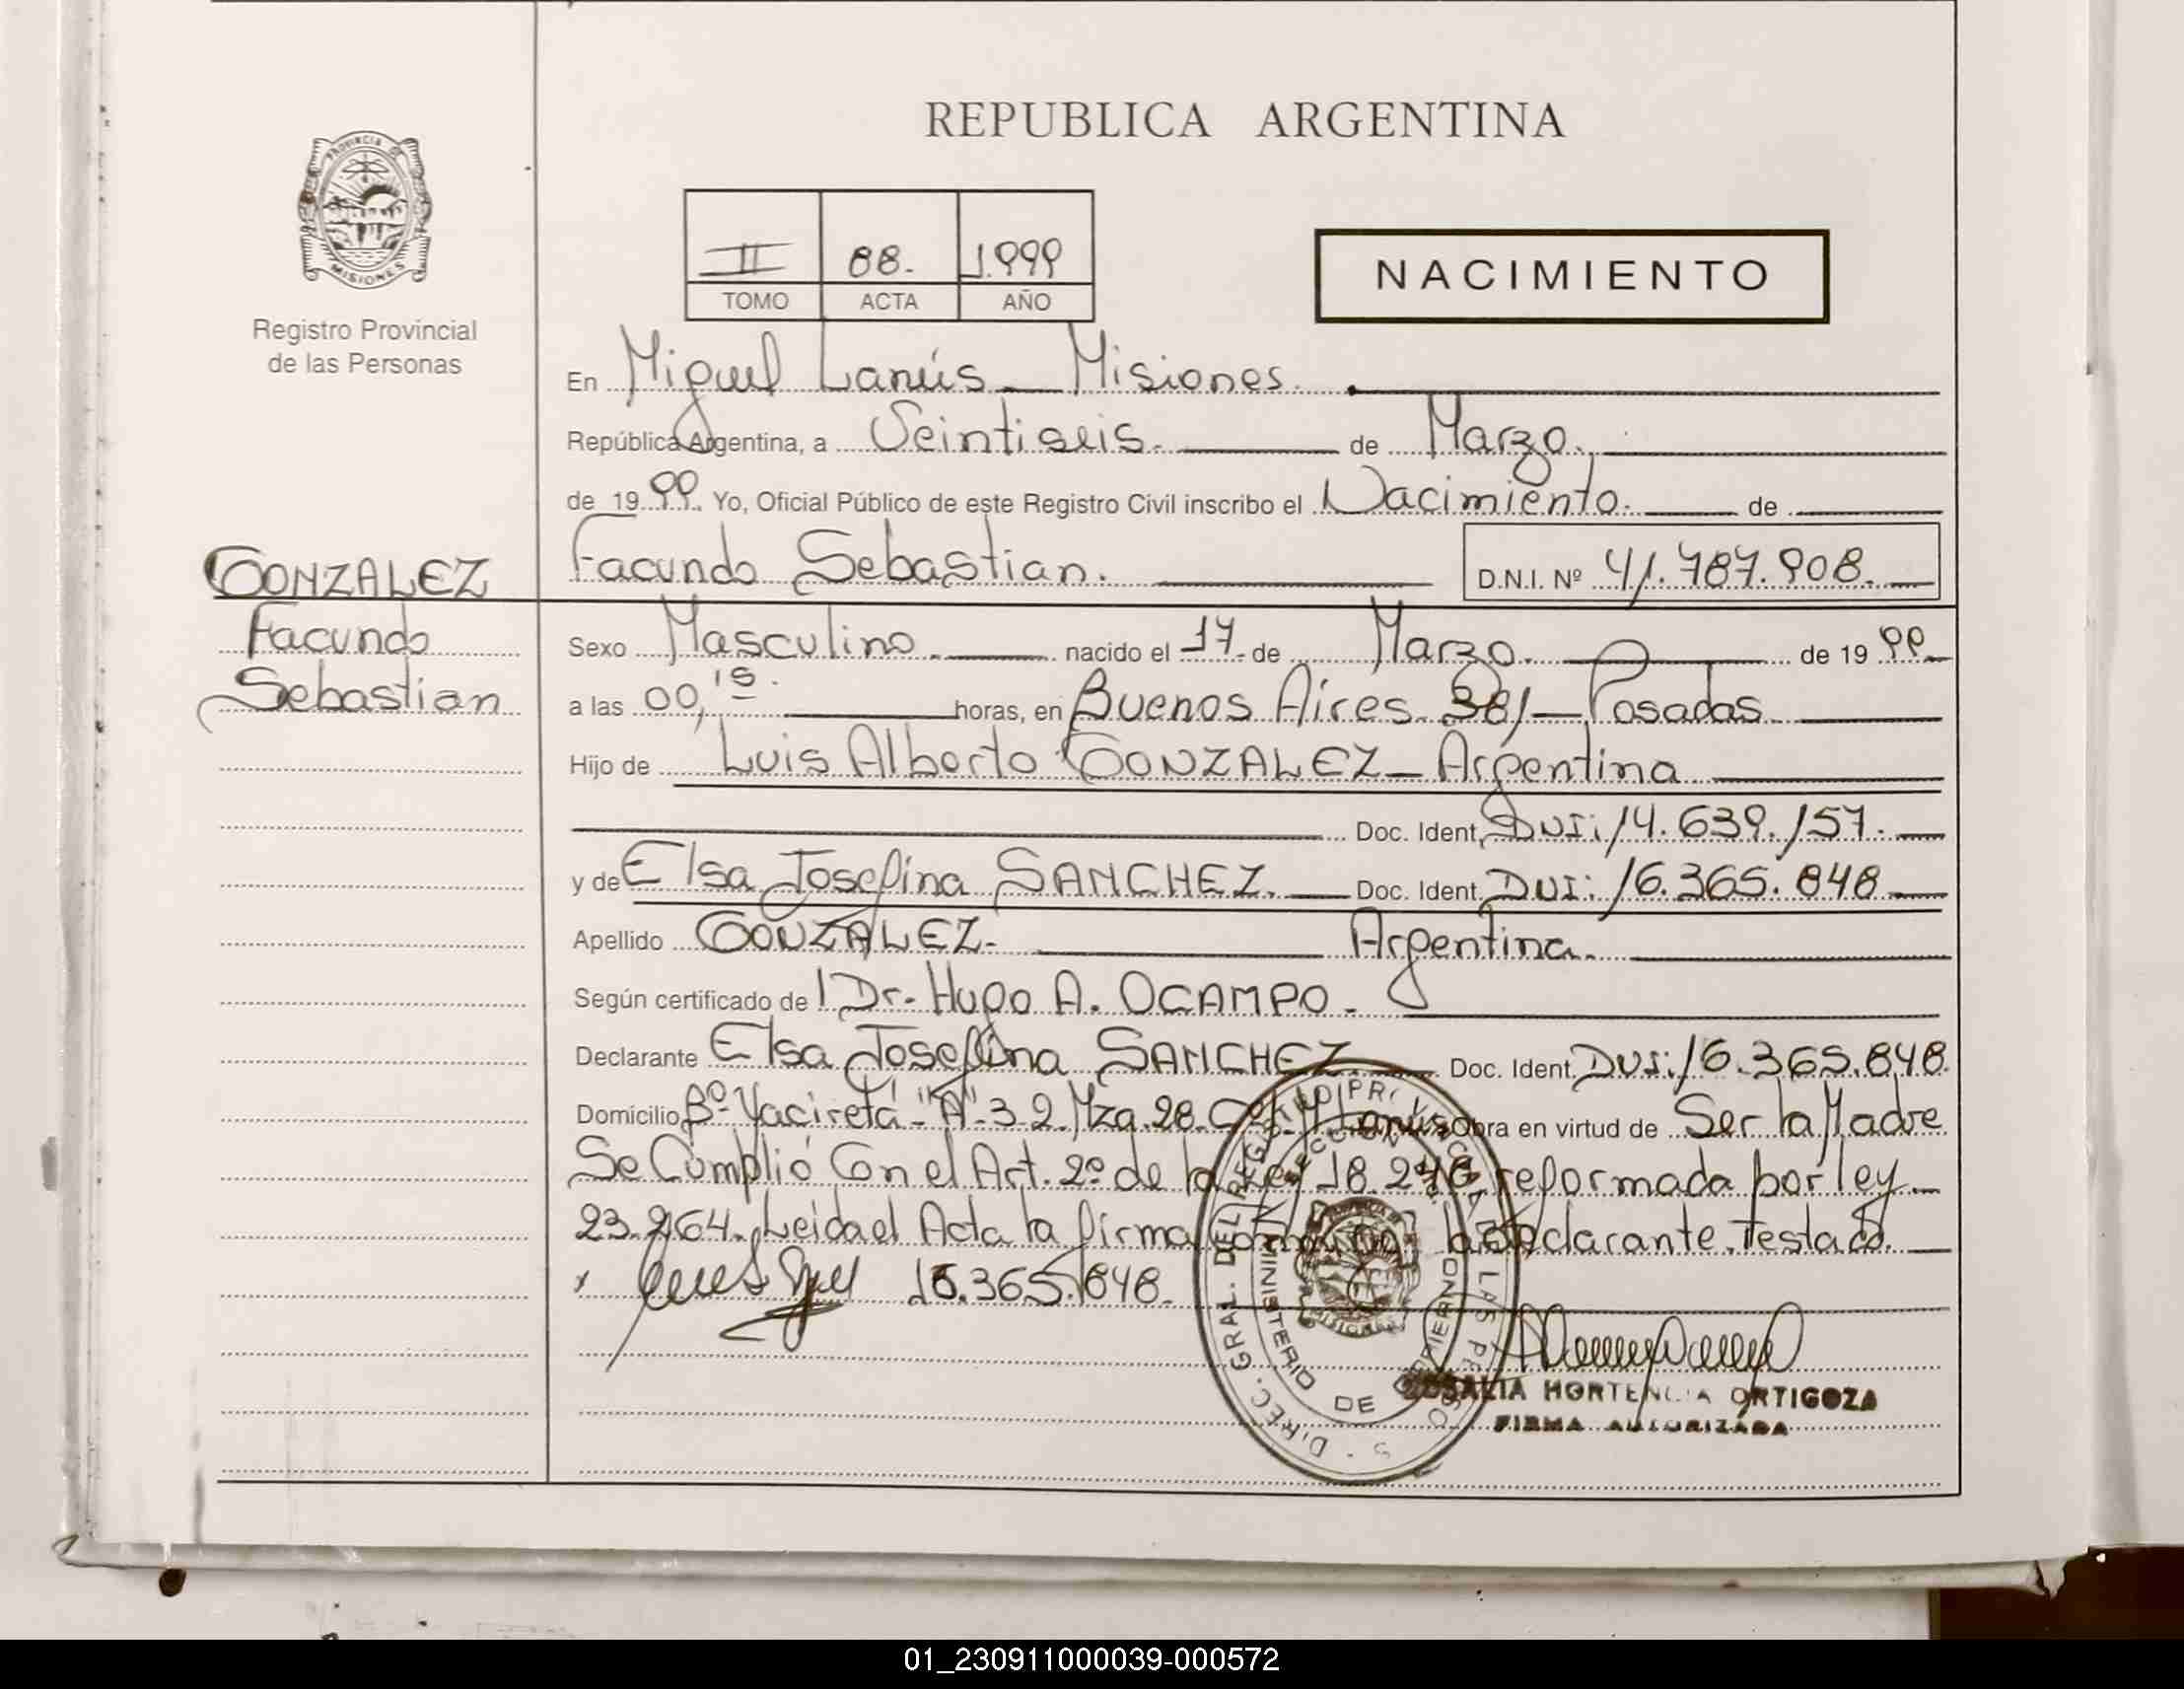 REPUBLICA ARGENTINA
PROVINCIA DE
MISIONES
Registro Provincial
de las Personas
II 88. 1.999
TOMO ACTA AÑO
NACIMIENTO
En Miguel Lanús - Misiones.
República Argentina, a Veintiseis. de Marzo.
de 1999. Yo, Oficial Público de este Registro Civil inscribo el Nacimiento. de
Facundo Sebastian. D.N.I. Nº 41.787.908.
GONZALEZ
Facundo
Sebastian
Sexo Masculino. nacido el 17 de Marzo. de 1999
a las 00,15. horas, en Buenos Aires 381 - Posadas
Hijo de Luis Alberto GONZALEZ - Argentina
Doc. Ident. DNI: 14.639.157.
y de Elsa Josefina SANCHEZ. Doc. Ident. DNI: 16.365.848
Apellido GONZALEZ- Argentina.
Según certificado de Dr. Hugo A. OCAMPO -
Declarante Elsa Josefina SANCHEZ Doc. Ident. DNI: 16.365.848.
Domicilio Bº- Yacireta- "A"- 32. Mza. 28. Lanús Obra en virtud de Ser la Madre
Se Cumplió Con el Art. 2º de la Ley 18.248 reformada por ley
23.264. Leida el Acta la firma la declarante. Testado.
16.365.848.
DIREC. GRAL. DEL REGISTRO PROVINCIAL DE LAS PERSONAS
MINISTERIO DE GOBIERNO
MISIONES
ROSALIA HORTENCIA ORTIGOZA
FIRMA AUTORIZADA
01_230911000039-000572